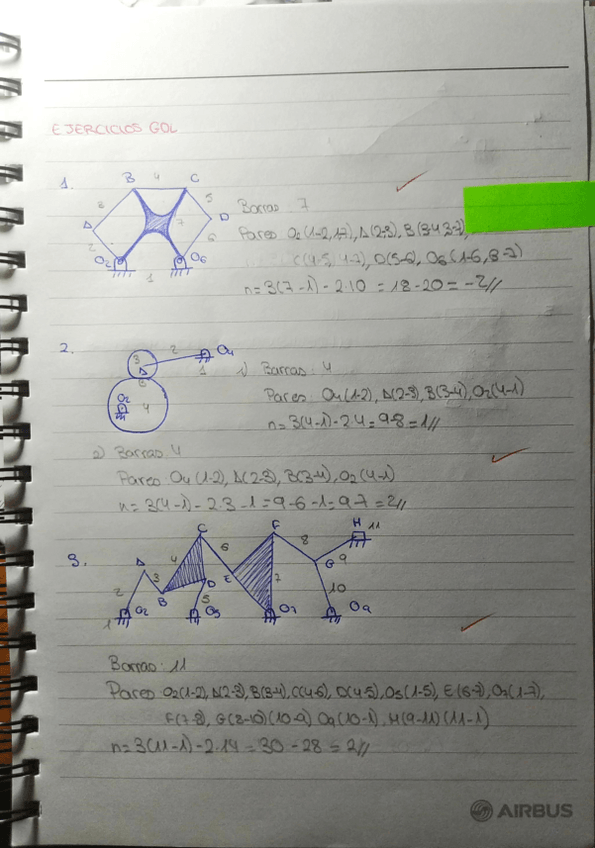 EJERCICIOS GDL
1.
B 4 C
3 5
A 7 D
2 6
O2 1 O6
Barras: 7
Pares: O2(1-2,1-7), A(2-3), B(3-4,3-7),
C(4-5,4-7), D(5-6), O6(1-6,
n=3(7-1)-2·10=18-20=-2//
2.
3 2 O4
A 1
B
O2 4
1) Barras: 4
Pares: O4(1-2), A(2-3), B(3-4), O2(4-1)
n=3(4-1)-2·4=9-8=1//
2) Barras: 4
Pares: O4(1-2), A(2-3), B(3-4), O2(4-1)
n=3(4-1)-2·3-1=9-6-1=9-7=2//
3.
C F H 11
A 4 6 8 9
2 3 D E 7 G
B 5 10
1 O2 O5 O7 O9
Barras: 11
Pares: O2(1-2), A(2-3), B(3-4), C(4-6), D(4-5), O5(1-5), E(6-7), O7(1-7),
F(7-8), G(8-10)(10-9), O9(10-1), H(9-11)(11-1)
n=3(11-1)-2·14=30-28=2//
AIRBUS